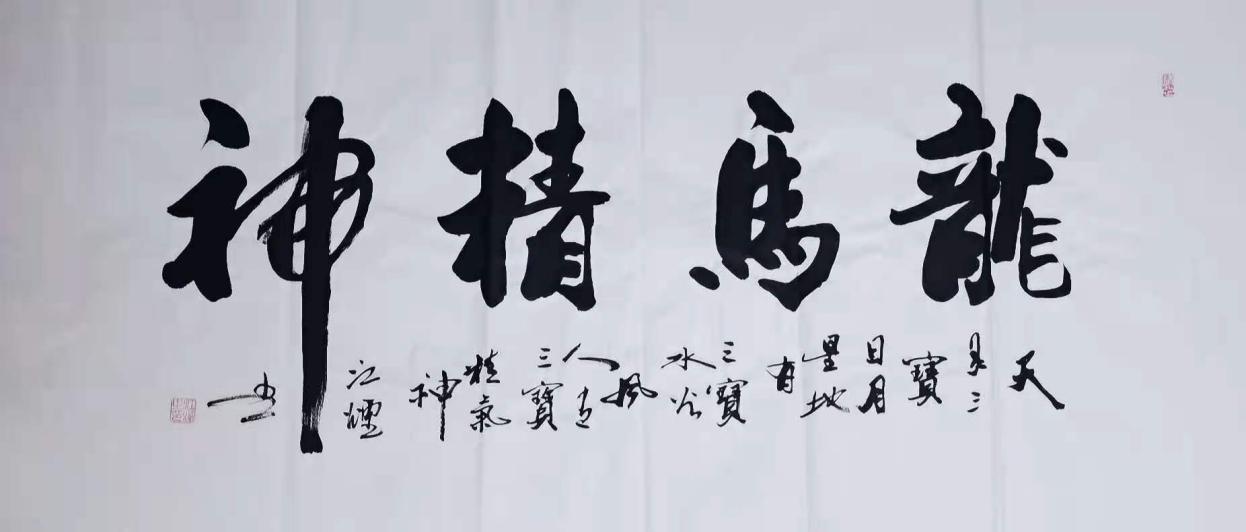 龍馬精神
天
有三
寶
日月
星地
有
三寶
水火
風
人有
三寶
精氣
神
江煙
書